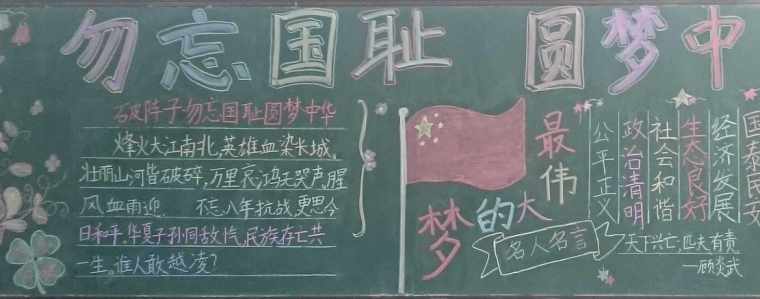 勿忘国耻 圆梦中
破阵子勿忘国耻圆梦中华
烽火大江南北,英雄血染长城,
壮丽山河皆破碎,万里哀鸿天哭声,腥
风血雨迎. 不忘八年抗战,更思今
日和平,华夏子孙同敌忾,民族存亡共
一生。谁人敢越凌?
最伟
大的梦
国泰民安
经济发展
生态良好
社会和谐
政治清明
公平正义
名人名言
天下兴亡,匹夫有责
—顾炎武